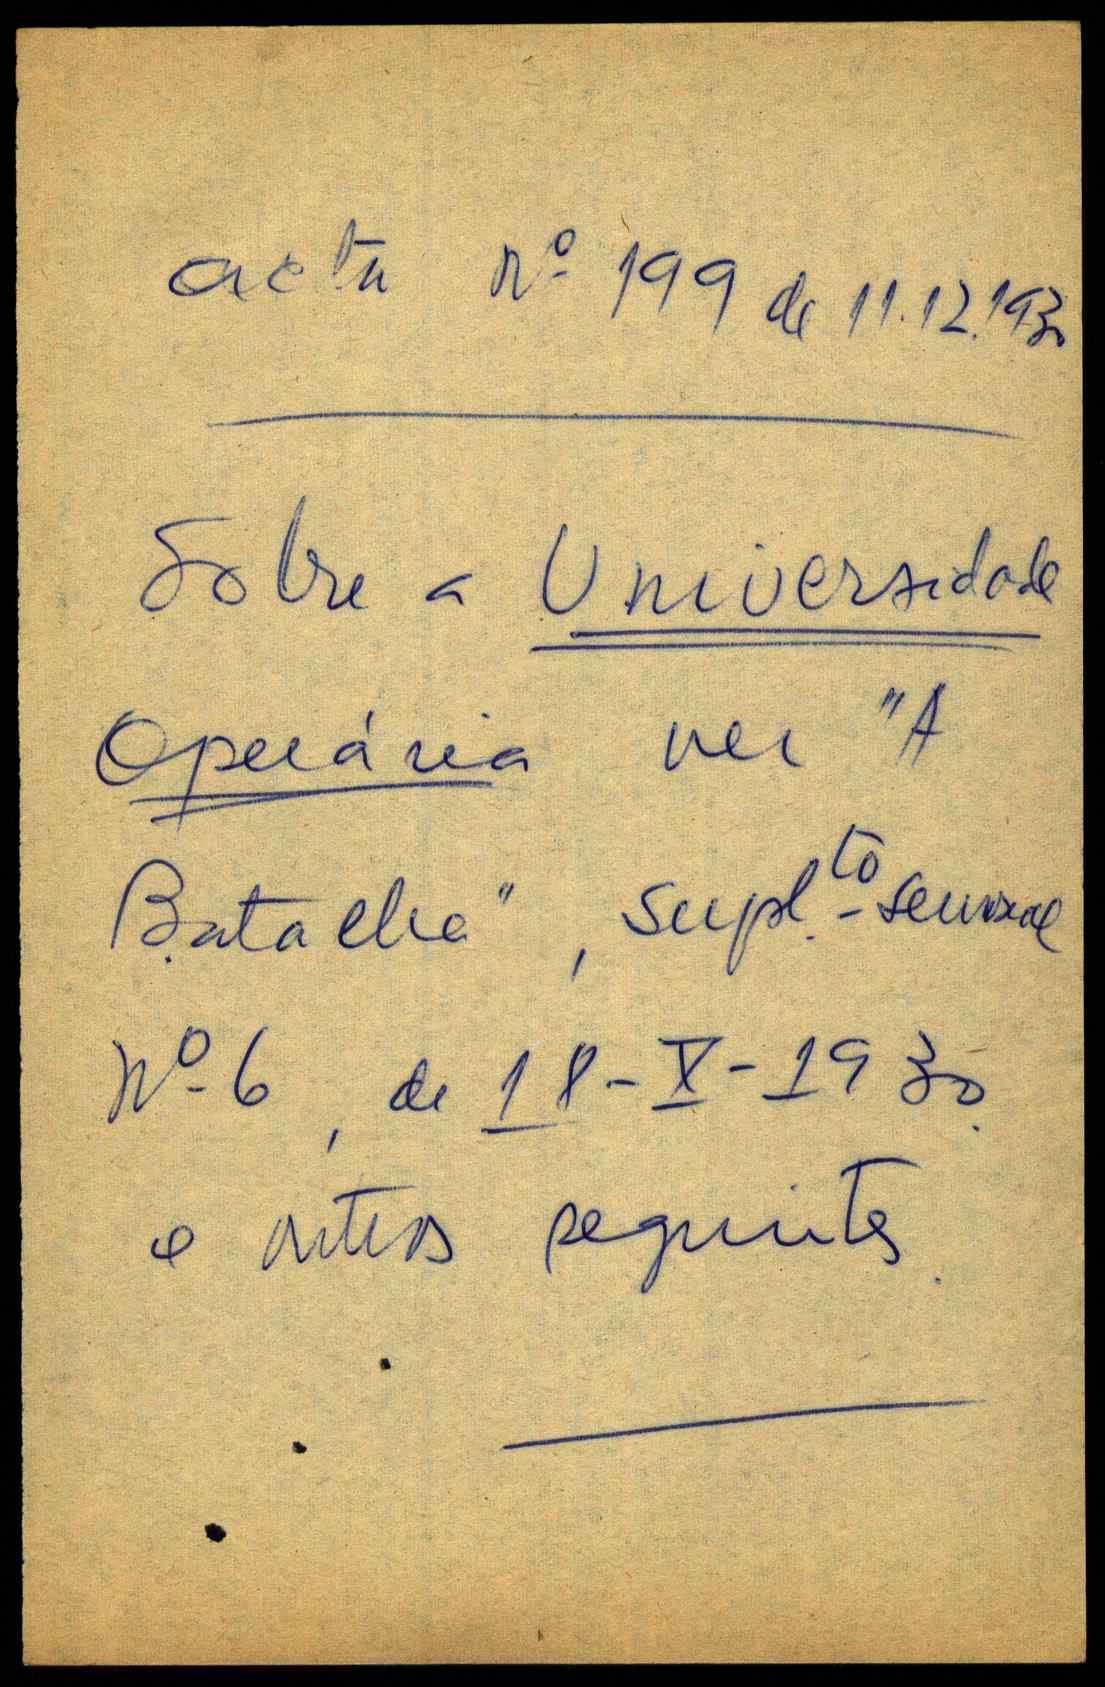 acta nº 199 de 11.12.1930
Sobre a Universidade
Operária ver "A
Batalha", supl.to semanal
nº 6, de 18-X-1930
e outros seguintes.